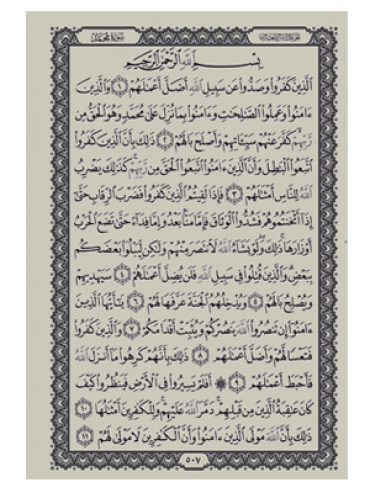 سورة محمد الجزء السادس والعشرون
بسم الله الرحمن الرحيم
الذين كفروا وصدوا عن سبيل الله أضل أعملهم ١ والذين
ءامنوا وعملوا الصلحت وءامنوا بما نزل على محمد وهو الحق من
ربهم كفر عنهم سيئاتهم وأصلح بالهم ٢ ذلك بأن الذين كفروا
اتبعوا البطل وأن الذين ءامنوا اتبعوا الحق من ربهم كذلك يضرب
الله للناس أمثلهم ٣ فإذا لقيتم الذين كفروا فضرب الرقاب حتى
إذا أثخنتموهم فشدوا الوثاق فإما منا بعد وإما فداء حتى تضع الحرب
أوزارها ذلك ولو يشاء الله لانتصر منهم ولكن ليبلوا بعضكم
ببعض والذين قتلوا في سبيل الله فلن يضل أعملهم ٤ سيهديهم
ويصلح بالهم ٥ ويدخلهم الجنة عرفها لهم ٦ يأيها الذين
ءامنوا إن تنصروا الله ينصركم ويثبت أقدامكم ٧ والذين كفروا
فتعسا لهم وأضل أعملهم ٨ ذلك بأنهم كرهوا ما أنزل الله
فأحبط أعملهم ٩ ۞ أفلم يسيروا في الأرض فينظروا كيف
كان عقبة الذين من قبلهم دمر الله عليهم وللكفرين أمثلها ١٠
ذلك بأن الله مولى الذين ءامنوا وأن الكفرين لا مولى لهم ١١
٥٠٧